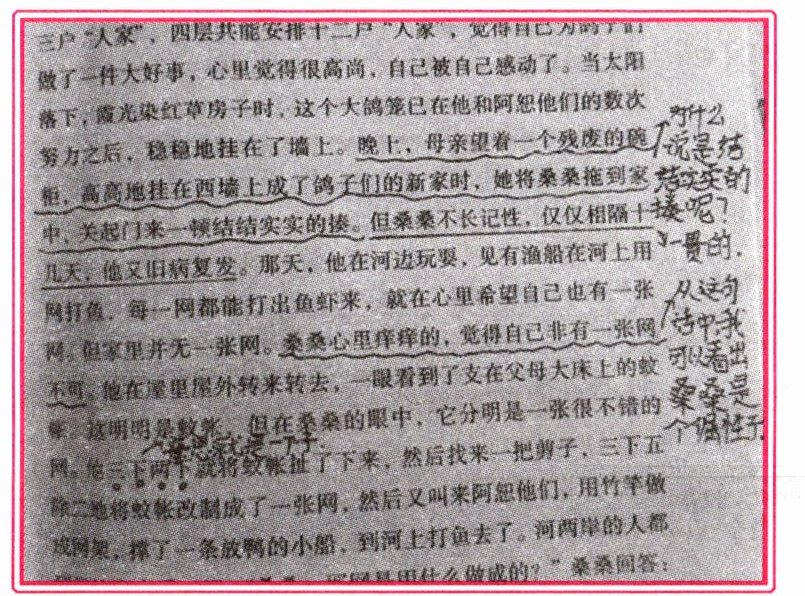 三户“人家”，四层共能安排十二户“人家”，觉得自己为鸽子们
做了一件大好事，心里觉得很高尚，自己被自己感动了。当太阳
落下，霞光染红草房子时，这个大鸽笼已在他和阿恕他们的数次
努力之后，稳稳地挂在了墙上。晚上，母亲望着一个残废的碗
柜，高高地挂在西墙上成了鸽子们的新家时，她将桑桑拖到家
中，关起门来一顿结结实实的揍。但桑桑不长记性，仅仅相隔十
几天，他又旧病复发。那天，他在河边玩耍，见有渔船在河上用
网打鱼，每一网都能打出鱼虾来，就在心里希望自己也有一张
网。但家里并无一张网。桑桑心里痒痒的，觉得自己非有一张网
不可。他在屋里屋外转来转去，一眼看到了支在父母大床上的蚊
帐。这明明是蚊帐，但在桑桑的眼中，它分明是一张很不错的
网。他三下两下就将蚊帐扯了下来，然后找来一把剪子，三下五
除二地将蚊帐改制成了一张网，然后又叫来阿恕他们，用竹竿做
成网架，撑了一条放鸭的小船，到河上打鱼去了。河两岸的人都
用什么做成的？”桑桑回答：
为什么
说是结
结实实的
揍呢？
一贯的.
从这句
话中,我
可以看出
桑桑是
个倔性子